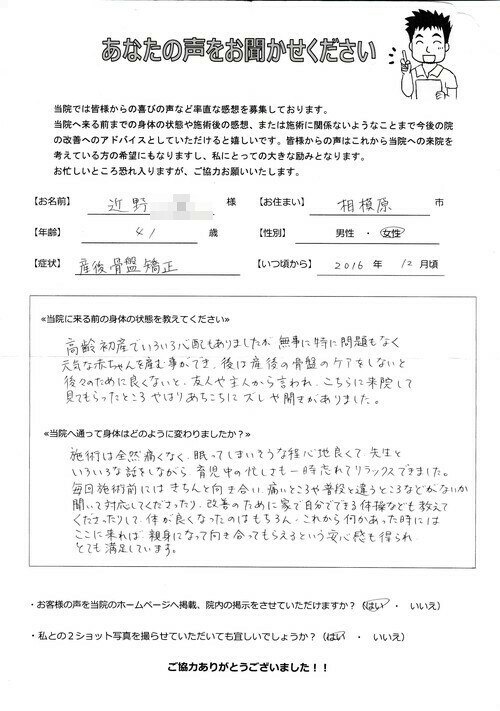 あなたの声をお聞かせください
当院では皆様からの喜びの声など率直な感想を募集しております。
当院へ来る前までの身体の状態や施術後の感想、または施術に関係ないようなことまで今後の院
の改善へのアドバイスとしていただけると嬉しいです。皆様からの声はこれから当院への来院を
考えている方の希望にもなりますし、私にとっての大きな励みとなります。
お忙しいところ恐れ入りますが、ご協力お願いいたします。
【お名前】 近野 様 【お住まい】 相模原 市
【年齢】 41 歳 【性別】 男性 ・ 女性
【症状】 産後骨盤矯正 【いつ頃から】 2016 年 12 月頃
≪当院に来る前の身体の状態を教えてください≫
高齢初産でいろいろ心配もありましたが 無事に特に問題もなく
元気な赤ちゃんを産む事ができ、後は産後の骨盤のケアをしないと
後々のために良くないと、友人や主人から言われ、こちらに来院して
見てもらったところ やはりあちこちに ズレや開きがありました。
≪当院へ通って身体はどのように変わりましたか？≫
施術は全然痛くなく、眠ってしまいそうな程心地良くて、先生と
いろいろな話をしながら、育児中の忙しさも一時忘れてリラックスできました。
毎回施術前には きちんと向き合い、痛いところや普段と違うところなどがないか
聞いて対応してくださったり、改善のために家で自分でできる体操なども教えて
くださったりして、体が良くなったのはもちろん、これから何かあった時には
ここに来れば、親身になって向き合ってもらえるという安心感も得られ
とても満足しています。
・お客様の声を当院のホームページへ掲載、院内の掲示をさせていただけますか？（はい ・ いいえ）
・私との２ショット写真を撮らせていただいても宜しいでしょうか？（はい ・ いいえ）
ご協力ありがとうございました！！